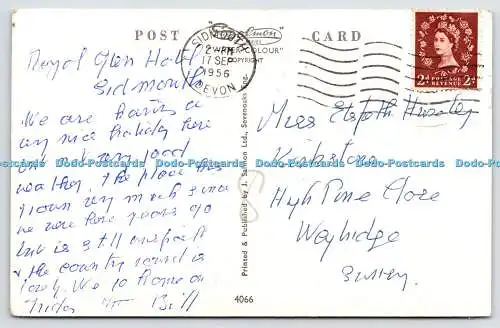 POST CARD
Salmon
SERIES
"WATER-COLOUR"
COPYRIGHT
SIDMOUTH
2 - PM
17 SEP
1956
DEVON
POSTAGE
REVENUE
2d 2d
Royal Glen Hotel
Sidmouth
We are having a
very nice holiday here
and very good
weather. The place has
grown very much since
we were here years ago
but is still unspoilt
& the country round is
lovely. We go home on
Friday Bill
Miss Elspeth
High Pine Close
Weybridge
Surrey.
Printed & Published by J. Salmon Ltd., Sevenoaks, Eng.
4066
Dodo-Postcards Dodo-Postcards Dodo-Postcards Dodo-Postcards Dodo-Postcards